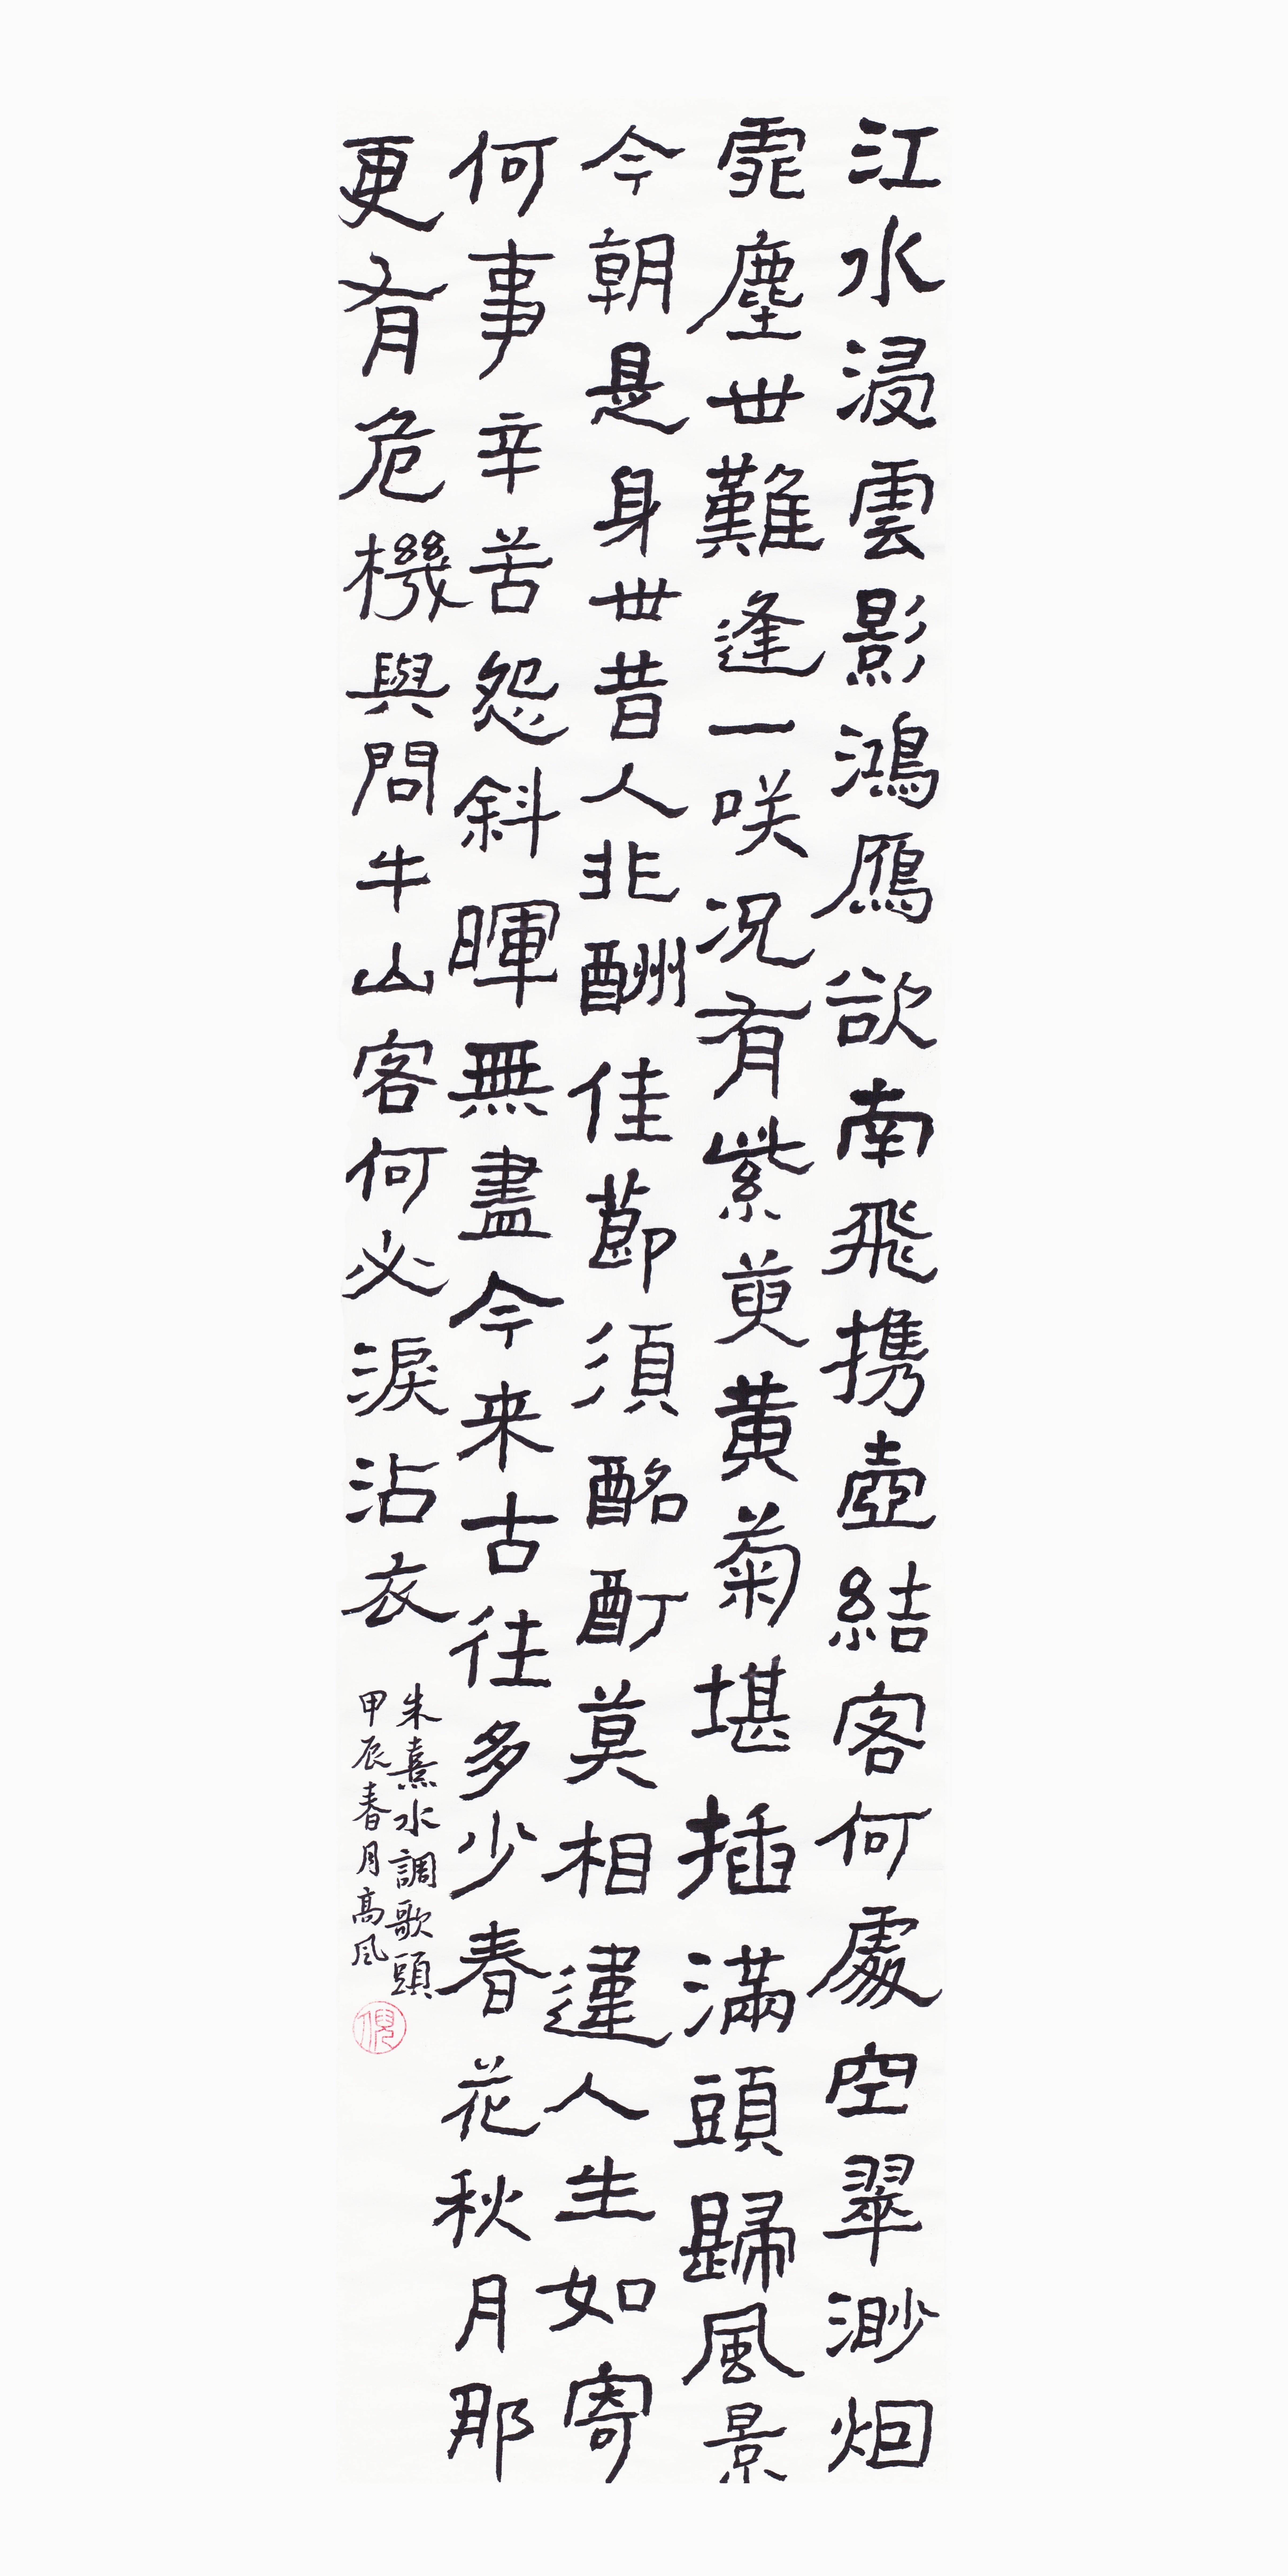 江水浸雲影鴻鴈欲南飛携壺結客何處空翠渺烟
霏塵世難逢一咲况有紫萸黄菊堪插滿頭歸風景
今朝是身世昔人非酬佳節須酩酊莫相違人生如寄
何事辛苦怨斜暉無盡今来古往多少春花秋月那
更有危機與問牛山客何必淚沾衣
朱熹水調歌頭
甲辰春月高风